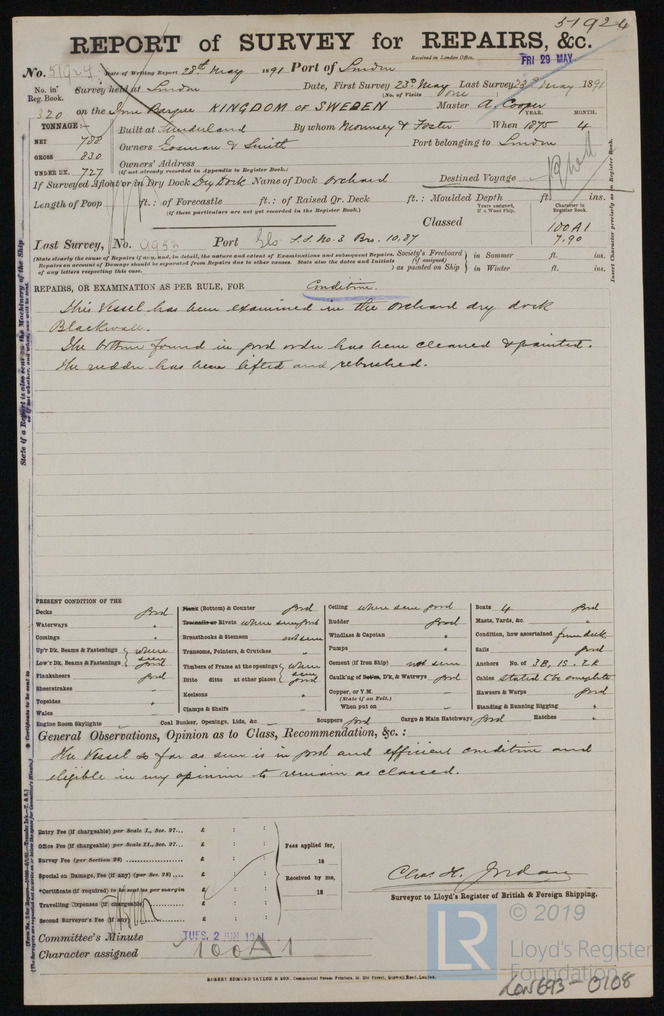 51924
REPORT of SURVEY for REPAIRS, &c.
Received in London Office,
FRI 29 MAY
No. 51924 Date of Writing Report 28th May 1891 Port of London
No. in Reg. Book. Survey held at London Date, First Survey 23rd May Last Survey 23rd May 1891
(No. of Visits One)
320 on the Iron Barque KINGDOM OF SWEDEN Master A. Cooper
YEAR. MONTH.
TONNAGE:— Built at Sunderland By whom Mounsey & Foster When 1875 4
NET 788
GROSS 830
UNDER DK. 727
Owners & Smith Port belonging to London
Owners' Address
(if not already recorded in Appendix to Register Book.)
If Surveyed Afloat or in Dry Dock Dry Dock Name of Dock Orchard Destined Voyage
Length of Poop ft.: of Forecastle ft.: of Raised Qr. Deck ft.: Moulded Depth ft. ins.
(if these particulars are not yet recorded in the Register Book.)
Years assigned, if a Wood Ship.
Character in Register Book.
Classed 100A1
7.90
Last Survey, No. 9953 Port Gls S.S. No. 3 Bro. 10.87
(State clearly the cause of Repairs if any, and, in detail, the nature and extent of Examinations and subsequent Repairs. Repairs on account of Damage should be separated from Repairs due to other causes. State also the dates and Initials of any letters respecting this case.
Society's Freeboard (if assigned) as painted on Ship
in Summer ft. ins.
in Winter ft. ins.
Insert Character precisely as in Register Book.
REPAIRS, OR EXAMINATION AS PER RULE, FOR Condition.
This Vessel has been examined in the Orchard dry dock
Blackwall.
The bottom found in good order has been cleaned & painted.
The rudder has been lifted and rebushed.
PRESENT CONDITION OF THE
Decks good
Waterways "
Comings "
Up'r Dk. Beams & Fastenings where seen good
Low'r Dk. Beams & Fastenings
Planksheers good
Sheerstrakes "
Topsides "
Wales "
Engine Room Skylights —
Plank (Bottom) & Counter good
Treenails or Rivets where seen good
Breasthooks & Stemson not seen
Transoms, Pointers, & Crutches "
Timbers of Frame at the openings where seen good
Ditto ditto at other places
Keelsons "
Clamps & Shelfs "
Coal Bunker, Openings, Lids, &c. —
Ceiling where seen good
Rudder good
Windlass & Capstan "
Pumps "
Cement (if Iron Ship) not seen
Caulk'ng of Bottom, D'k, & Waterwys good
Copper, or Y.M.
(State if on Felt.)
When put on
Scuppers good Cargo & Main Hatchways good Hatches "
Boats 4 good
Masts, Yards, &c. "
Condition, how ascertained from deck
Sails good
Anchors No. of 3B, 1S, 2K
Cables stated Complete
Hawsers & Warps good
Standing & Running Rigging "
General Observations, Opinion as to Class, Recommendation, &c.:
The Vessel so far as seen is in good and efficient condition and
eligible in my opinion to remain as classed.
Entry Fee (if chargeable) per Scale I., Sec. 27... £ : :
Office Fee (if chargeable) per Scale II., Sec. 27... £ : :
Survey Fee (per Section 28) £ : :
Special on Damage, Fee (if any) (per Sec. 28)... £ : :
*Certificate (if required) to be sent as per margin £ : :
Travelling Expenses (if chargeable) £ : :
Second Surveyor's Fee (if any) £ : :
Fees applied for,
18
Received by me,
18
Chas. H. Jordan
Surveyor to Lloyd's Register of British & Foreign Shipping.
Committee's Minute TUES. 2 JUN 1891
Character assigned 100A1
ROBERT EDMUND TAYLOR & SON, Commercial Steam Printers, 19, Old Street, Goswell Road, London.
LR © 2019
Lloyd's Register
Foundation
LON693-0108